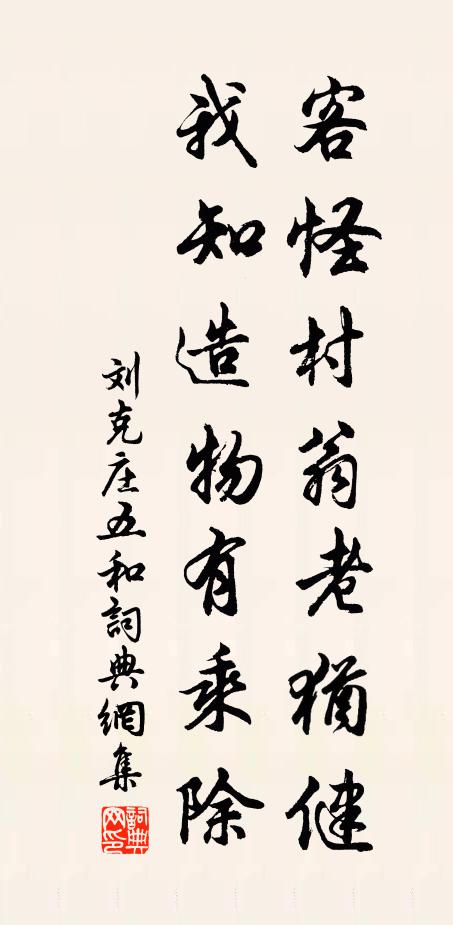 客怪村翁老犹健
我知造物有乘除
刘克庄五和詞典網集
詞典网印